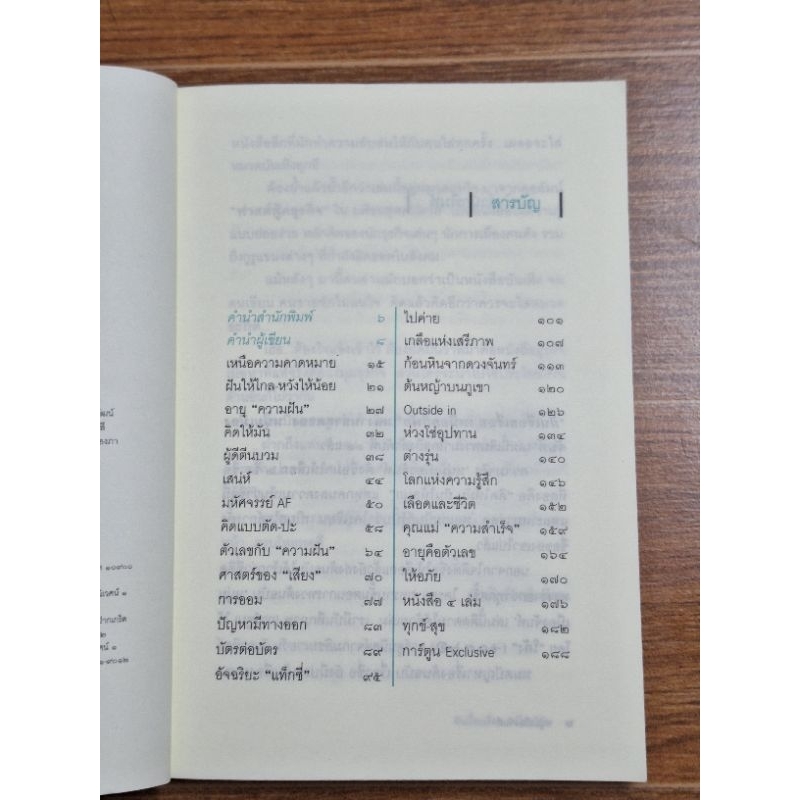 สารบัญ
คำนำสำนักพิมพ์ ๖
คำนำผู้เขียน ๘
เหนือความคาดหมาย ๑๕
ฝันให้ไกล-หวังให้น้อย ๒๑
อายุ “ความฝัน” ๒๗
คิดให้มัน ๓๒
ผู้ดีตีนบวม ๓๘
เสน่ห์ ๔๔
มหัศจรรย์ AF ๕๐
คิดแบบตัด-ปะ ๕๘
ตัวเลขกับ “ความฝัน” ๖๔
ศาสตร์ของ “เสียง” ๗๐
การออม ๗๗
ปัญหามีทางออก ๘๓
บัตรต่อบัตร ๘๙
อัจฉริยะ “แท็กซี่” ๙๕
ไปค่าย ๑๐๑
เกลือแห่งเสรีภาพ ๑๐๗
ก้อนหินจากดวงจันทร์ ๑๑๓
ต้นหญ้าบนภูเขา ๑๒๐
Outside in ๑๒๖
ห่วงโซ่อุปทาน ๑๓๔
ต่างรุ่น ๑๔๐
โลกแห่งความรู้สึก ๑๔๖
เลือดและชีวิต ๑๕๒
คุณแม่ “ความสำเร็จ” ๑๕๙
อายุคือตัวเลข ๑๖๔
ให้อภัย ๑๗๐
หนังสือ ๕ เล่ม ๑๗๖
ทุกข์-สุข ๑๘๒
การ์ตูน Exclusive ๑๘๘